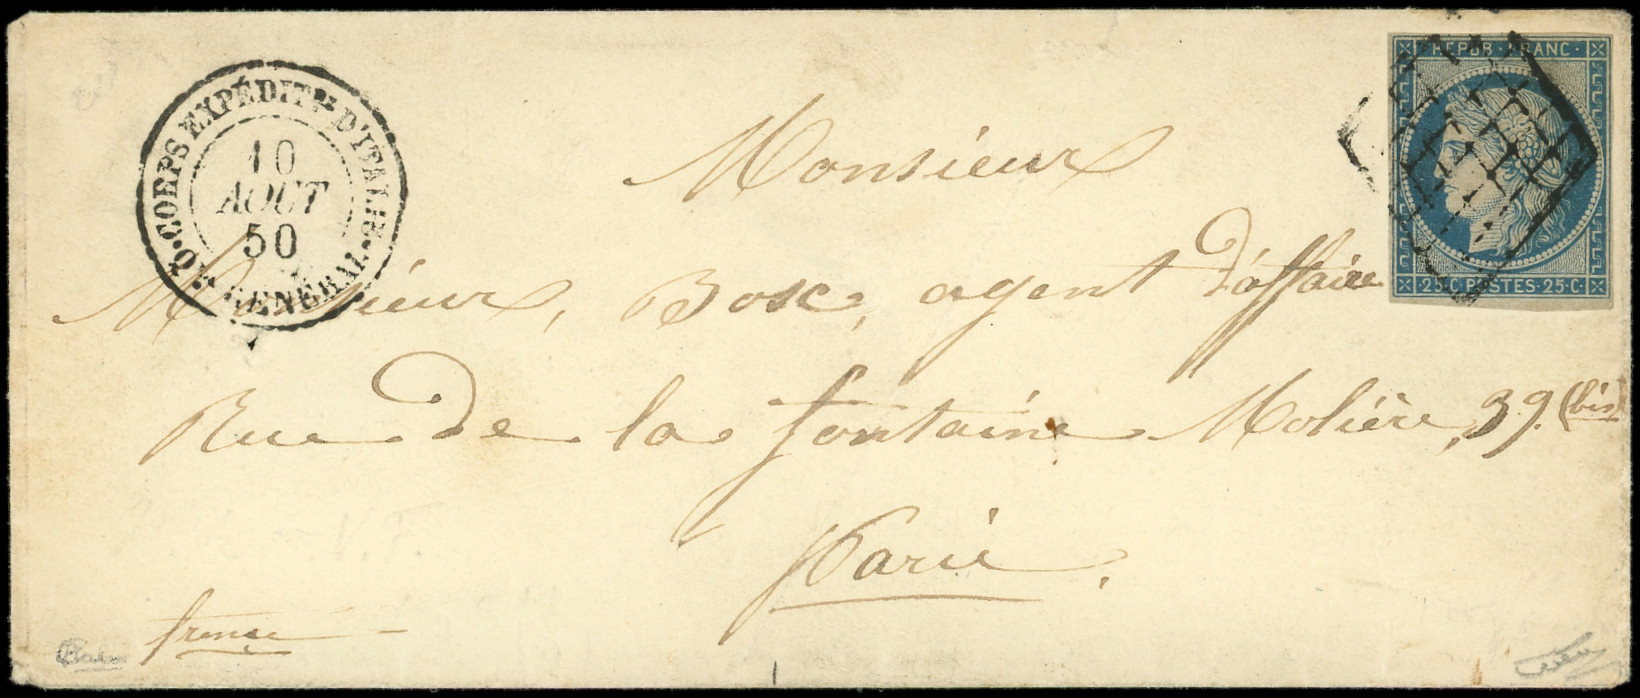 CORPS EXPÉDIT.re D'ITALIE
10
AOUT
50
Qr GÉNÉRAL
REPUB · FRANC ·
25 · C · POSTES · 25 · C ·
Monsieur
Monsieur, Bosc, agent d'affaire
Rue de la fontaine Molière, 39. (bis)
Paris.
france